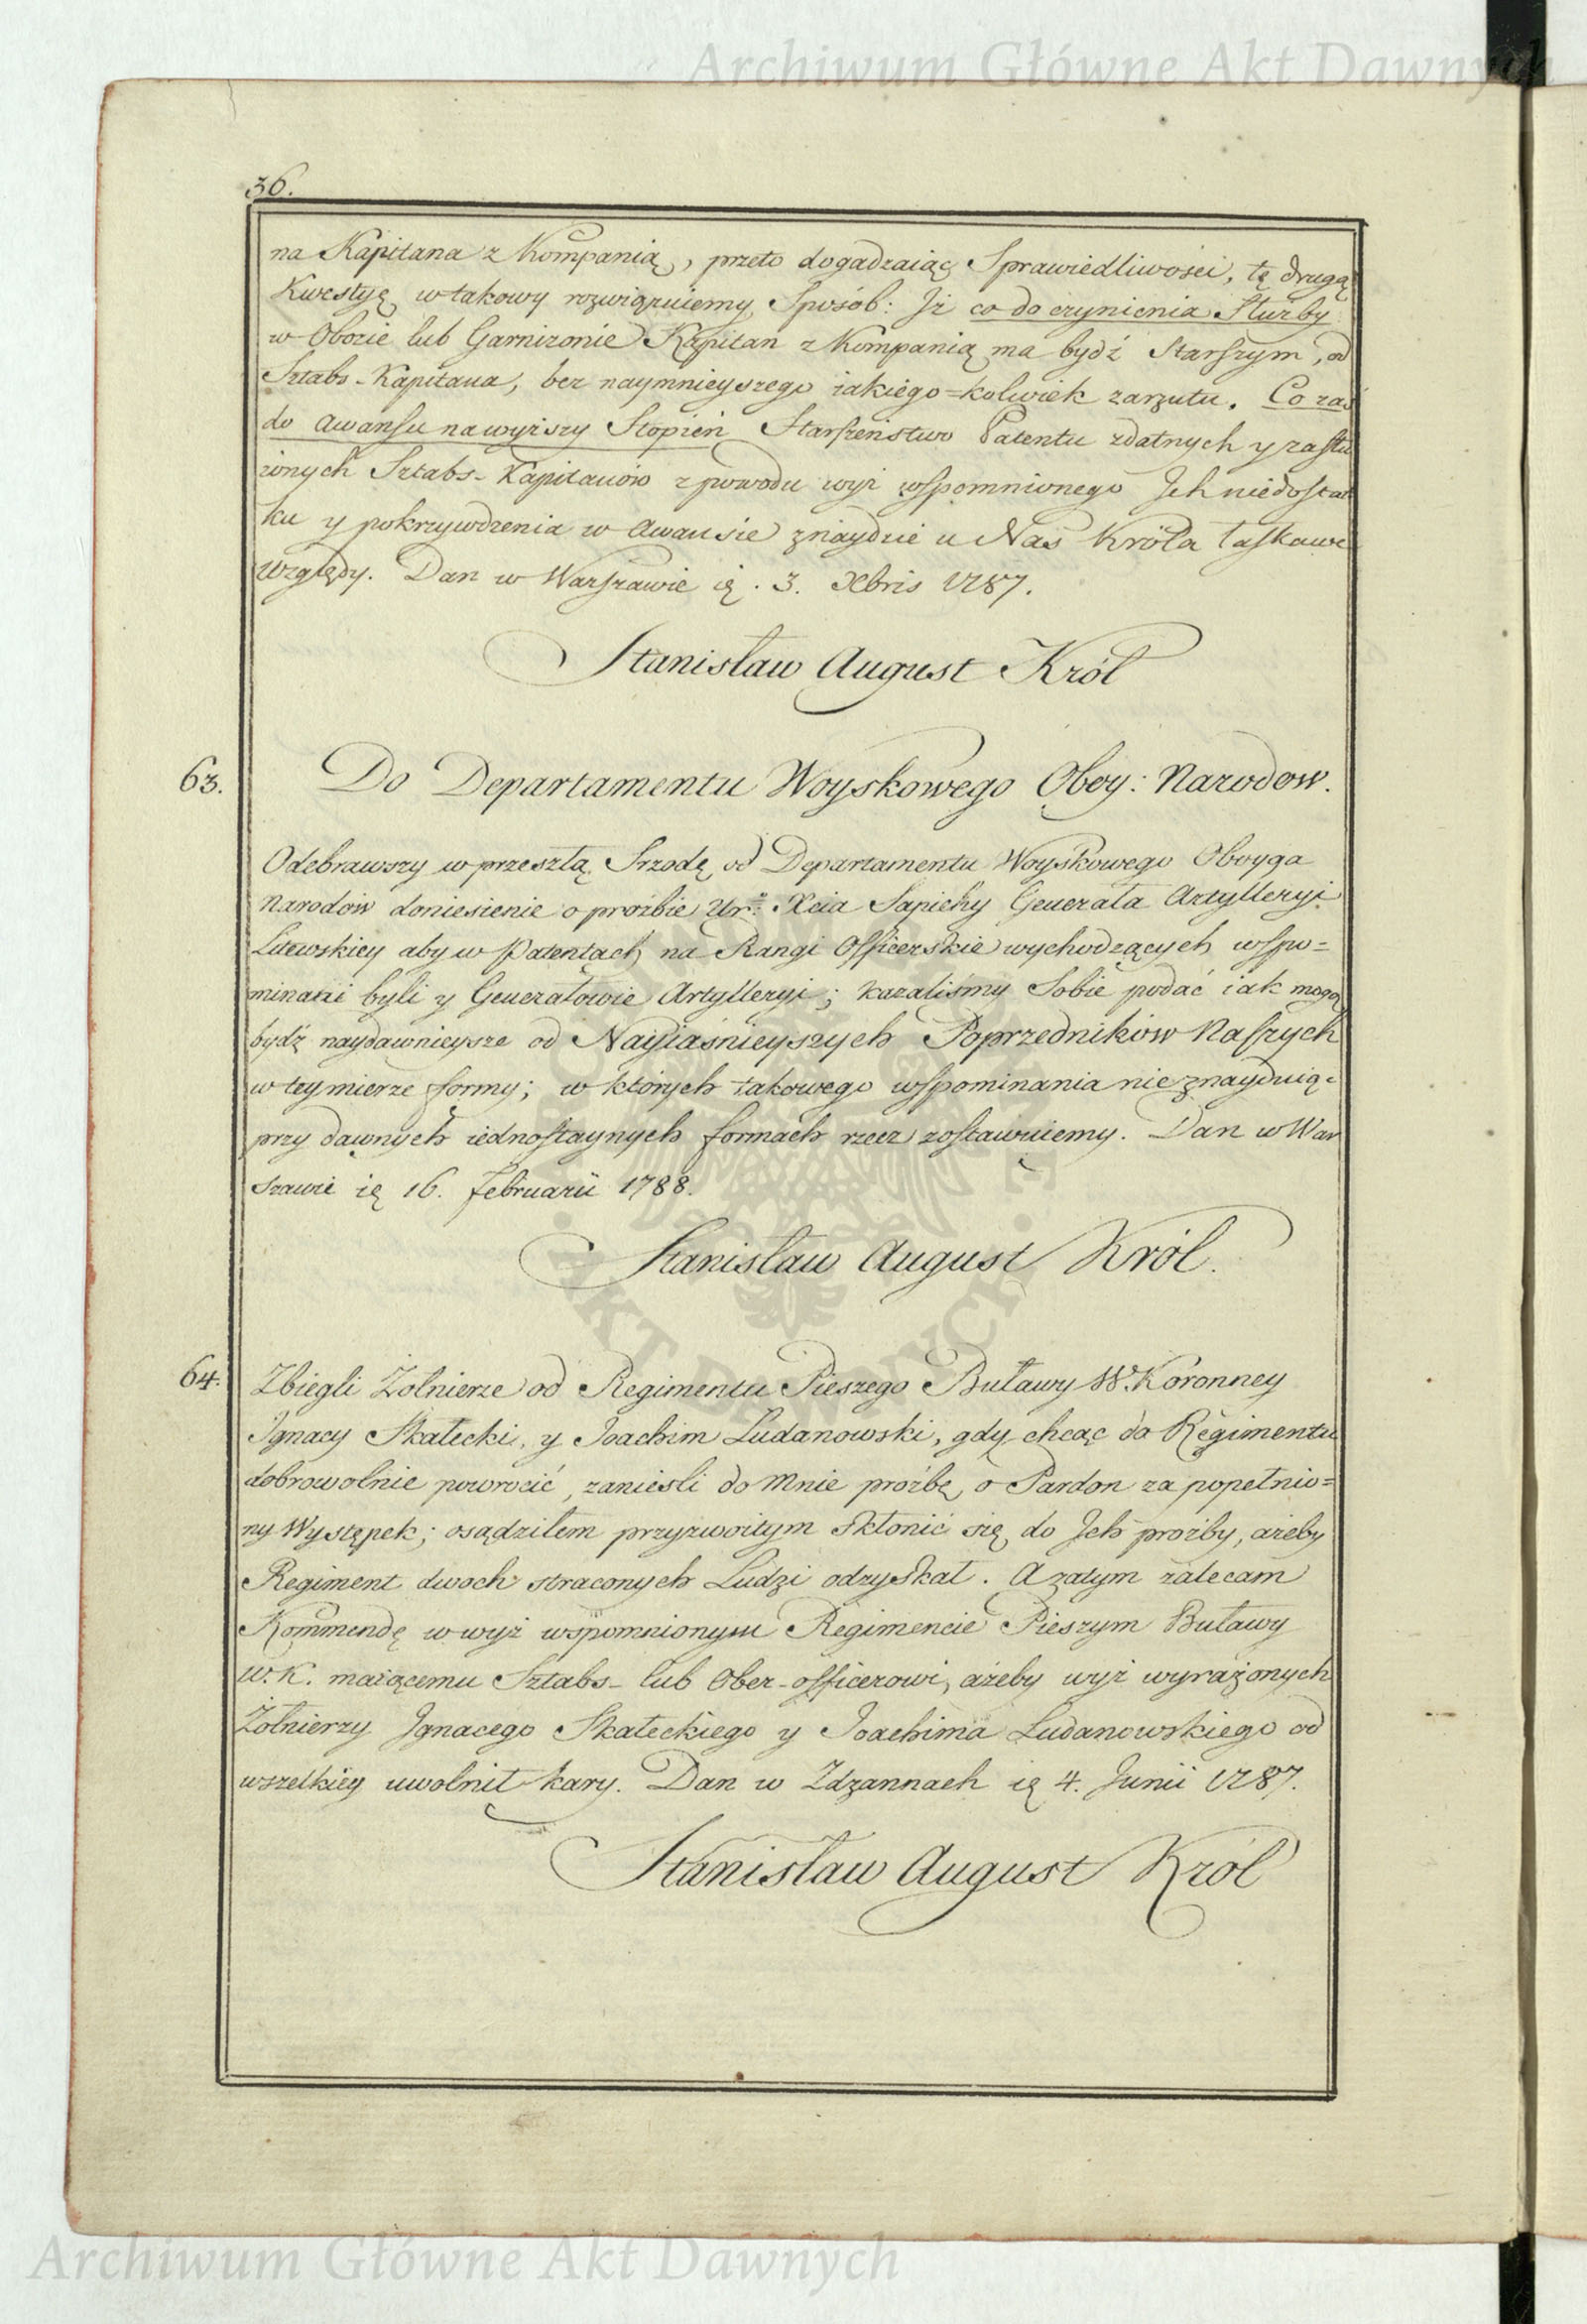 Archiwum Główne Akt Dawnych
36.
na Kapitana z Kompanią, przeto dogadzaiąc Sprawiedliwości, tę drugą
Kwestyę w takowy rozwiązuiemy Sposób: Jż co do czynienia Służby
w Obozie lub Garnizonie Kapitan z Kompanią ma bydź Starszym, od
Sztabs-Kapitana, bez naymnieyszego iakiego=kolwiek zarzutu. Co zaś
do awansu na wyższy Stopień Starszeństwo Patentu zdatnych y zasłu
żonych Sztabs-Kapitanów z powodu wyż wspomnionego Jch niedostat
ku y pokrzywdzenia w Awansie znaydzie u Nas Króla łaskawe
względy. Dan w Warszawie ię. 3. Xbris 1787.
Stanisław August Król
63.
Do Departamentu Woyskowego Oboy: Narodow.
Odebrawszy w przeszłą Srzodę od Departamentu Woyskowego Oboyga
Narodów doniesienie o proźbie Ur: Xcia Sapiehy Generała Artylleryi
Litewskiey aby w Patentach na Rangi Officerskie wychodzących wspo=
minani byli y Generałowie Artylleryi; kazaliśmy Sobie podać iak mogą
bydź naydawnieysze od Nayiaśnieyszych Poprzedników Naszych
w tey mierze formy; w których takowego wspominania nie znayduiąc
przy dawnych iednostaynych formach rzecz zostawuiemy. Dan w War
szawie ię 16. Februarii 1788.
Stanisław August Król.
64.
Zbiegli Żołnierze od Regimentu Pieszego Buławy W. Koronney
Jgnacy Skałecki, y Joachim Ludanowski, gdy chcąc do Regimentu
dobrowolnie powrocić, zanieśli do Mnie proźbę o Pardon za popełnio=
ny Występek; osądziłem przyzwoitym skłonić się do Jch proźby, ażeby
Regiment dwoch straconych Ludzi odzyskał. A zatym zalecam
Kommendę w wyż wspomnionym Regimencie Pieszym Buławy
W. K. maiącemu Sztabs- lub Ober-officerowi, ażeby wyż wyrażonych
Żołnierzy Jgnacego Skałeckiego y Joachima Ludanowskiego od
wszelkiey uwolnił kary. Dan w Zdzannach ię 4. Junii 1787.
Stanisław August Król
Archiwum Główne Akt Dawnych